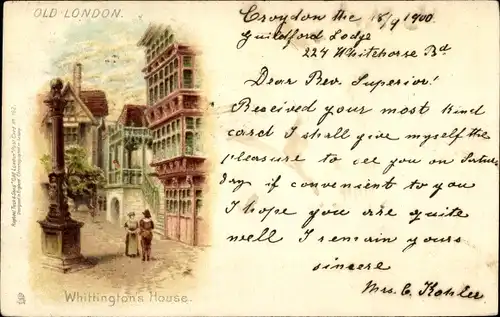 OLD LONDON.
Croydon the 18/9 1900
Guildford Lodge
224 Whitehorse Rd
Dear Rev. Superior!
Received your most kind
card I shall give myself the
pleasure to see you on Satur
day if convenient to you
I hope you are quite
well I remain yours
sincere
Mrs. C. Kohler
Whittington's House.